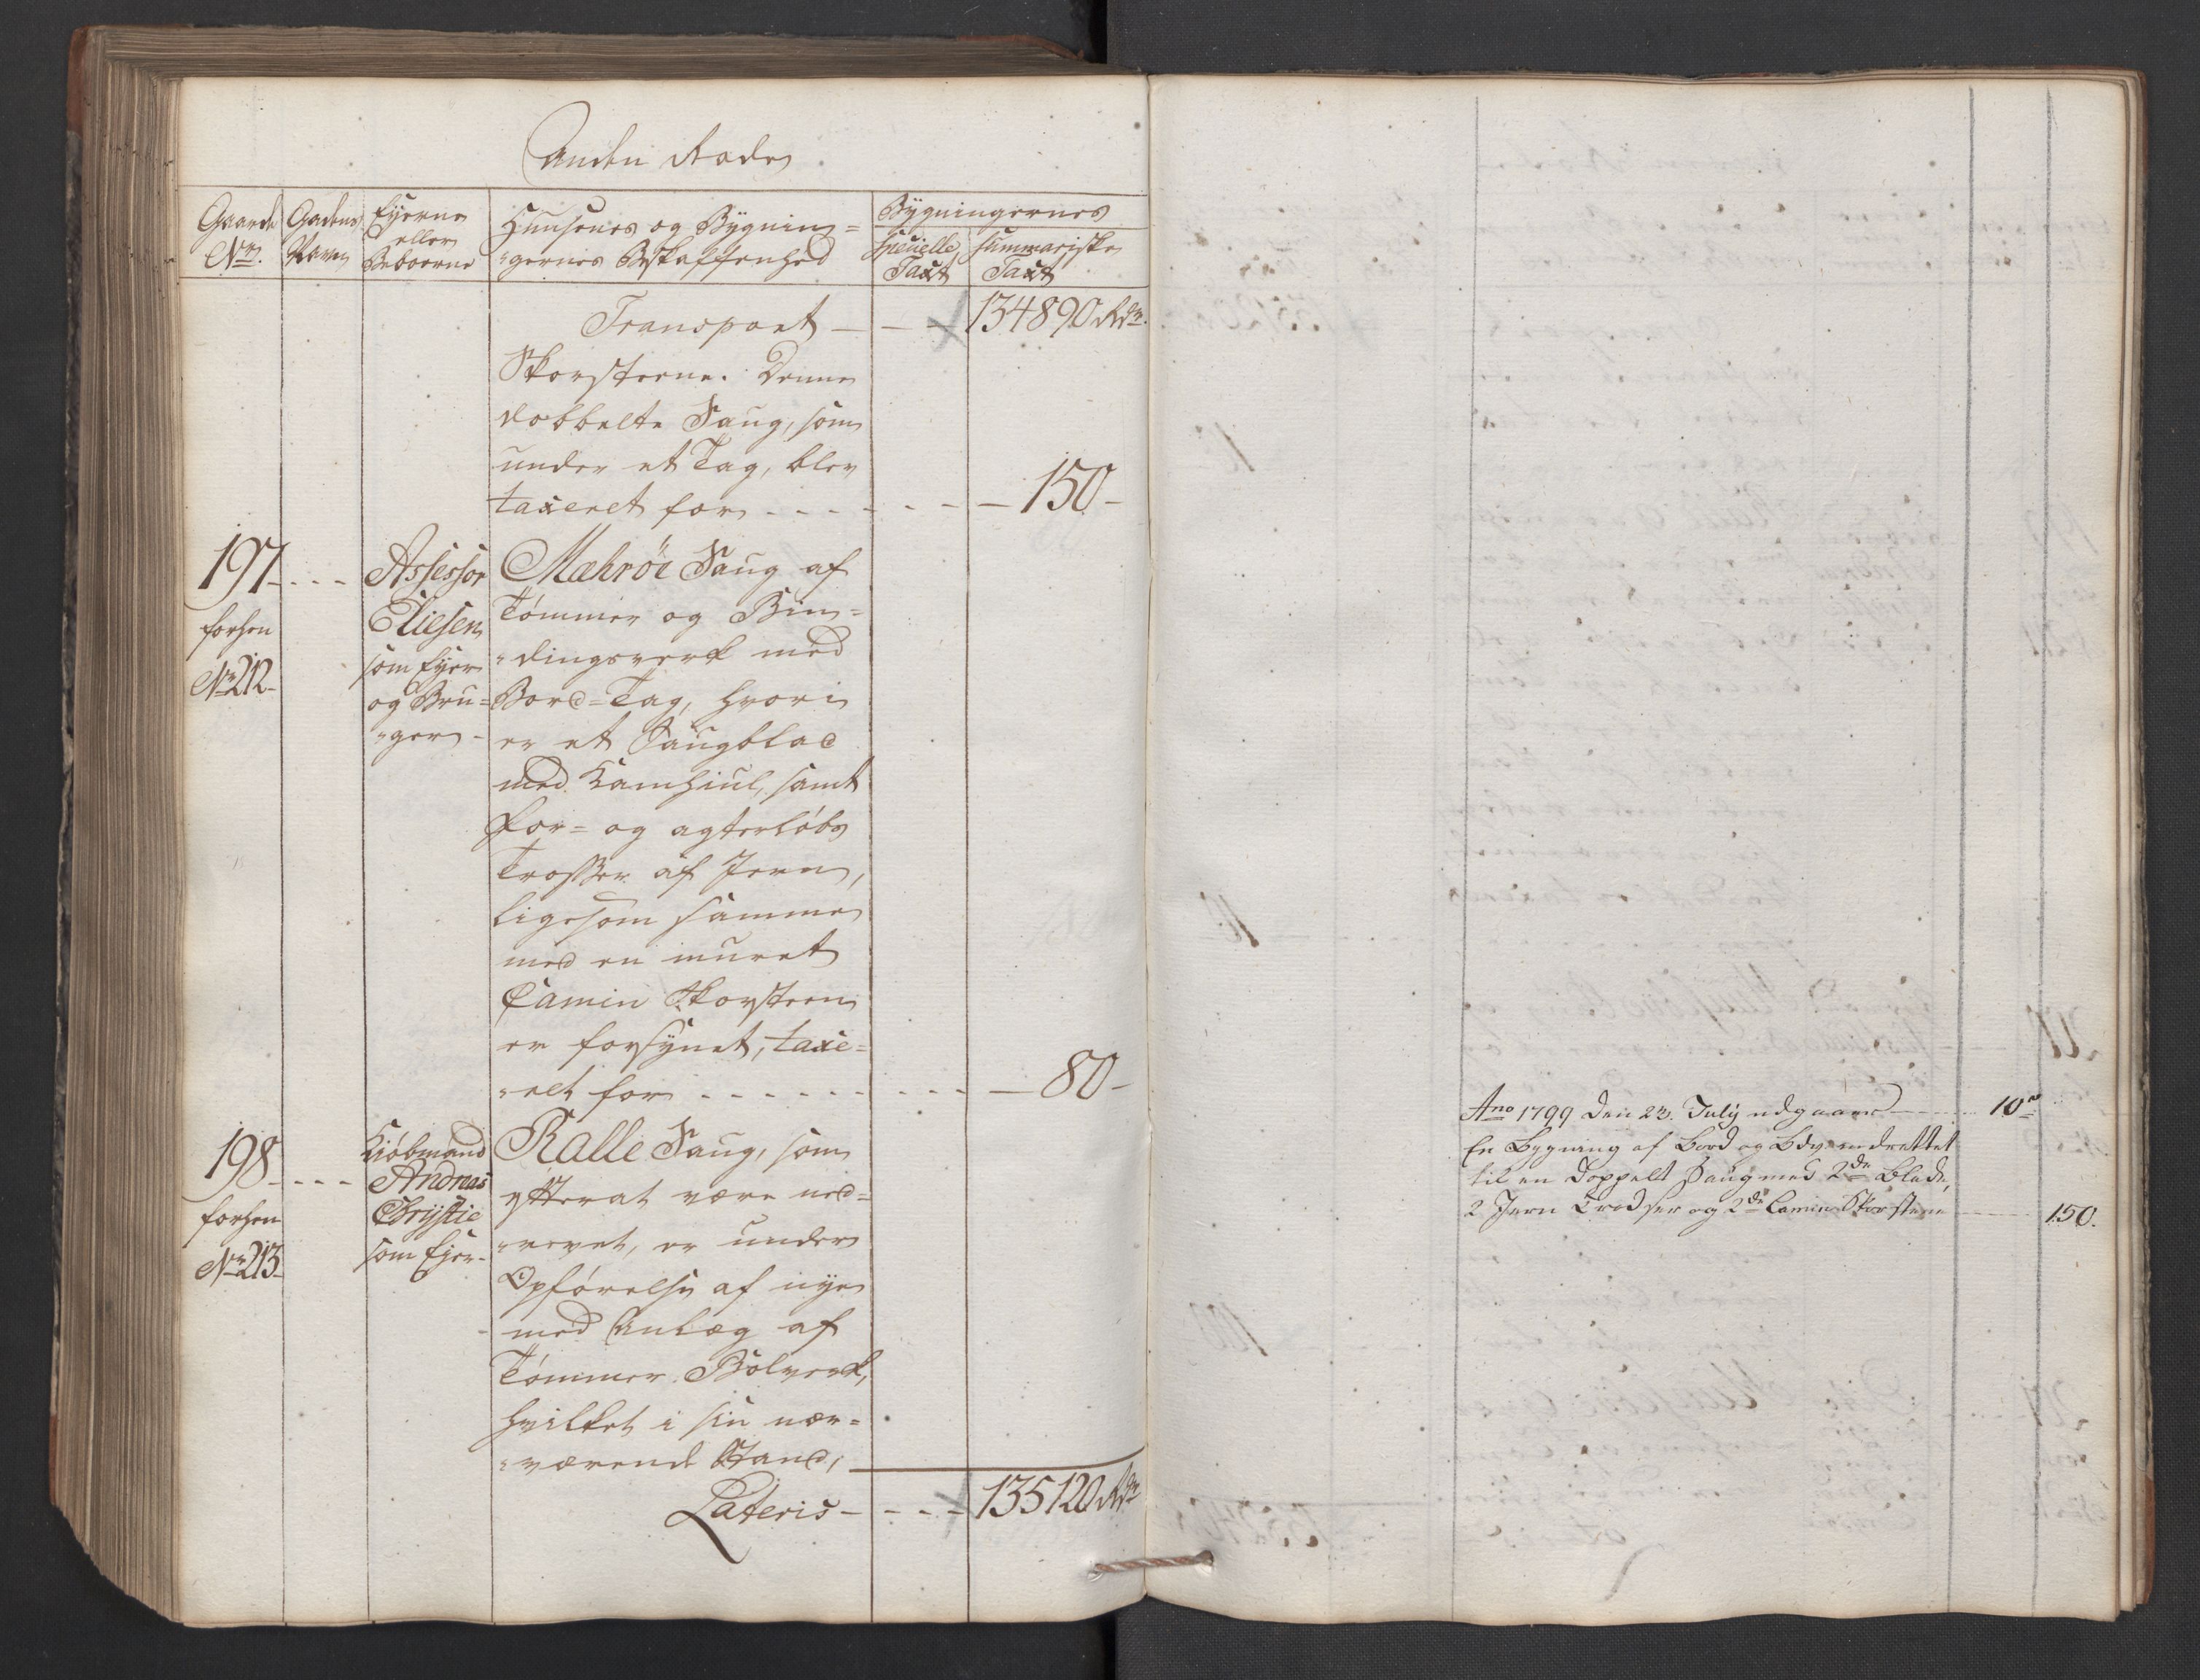 Anden Rode
Gaarde
No.
Gadens
Navn
Ejerne
eller
Beboerne
Huusenes og Bygnin=
=gernes Beskaffenhed
Bygningernes
Specielle
Taxt
Summariske
Taxt
Transport - - - 134890 Rdr.
Skorsteene. Denne
dobbelte Saug, som
under et Tag, blev
taxeret for - - - - - - 150-
197. - - -
forhen
No 212.
Assessor
Eliesen
som Ejer
og Bru=
=ger -
Mæhröe Saug af
Tömmer og Bin=
=dingsverk med
Bord=Tag, hvori
er et Saugblad
med Kamhiul, samt
for= og agterlöbs
Trosser af Jern,
ligesom samme
med en muret
Camin Skorsteen
er forsynet, taxe=
=ret for - - - - - - - - 80-
198. - - -
forhen
No 213.
Kiöbmand
Andreas
Chrystie
som Ejer.
Kalle Saug, som
efter at være ned=
=revet, er under
Opförelse af nye
med Anlæg af
Tömmer Bolverk,
hvilket i sin nær=
=værende Stand,
Lateris - - - - 135120 Rdr
Ano 1799 den 23. July udgaaer - - - 10
En Bygning af Bord og indrettet
til en doppelt Saug med 2de Blade,
2 Jern Trodser og 2de Camin Skorstene - - - 150.